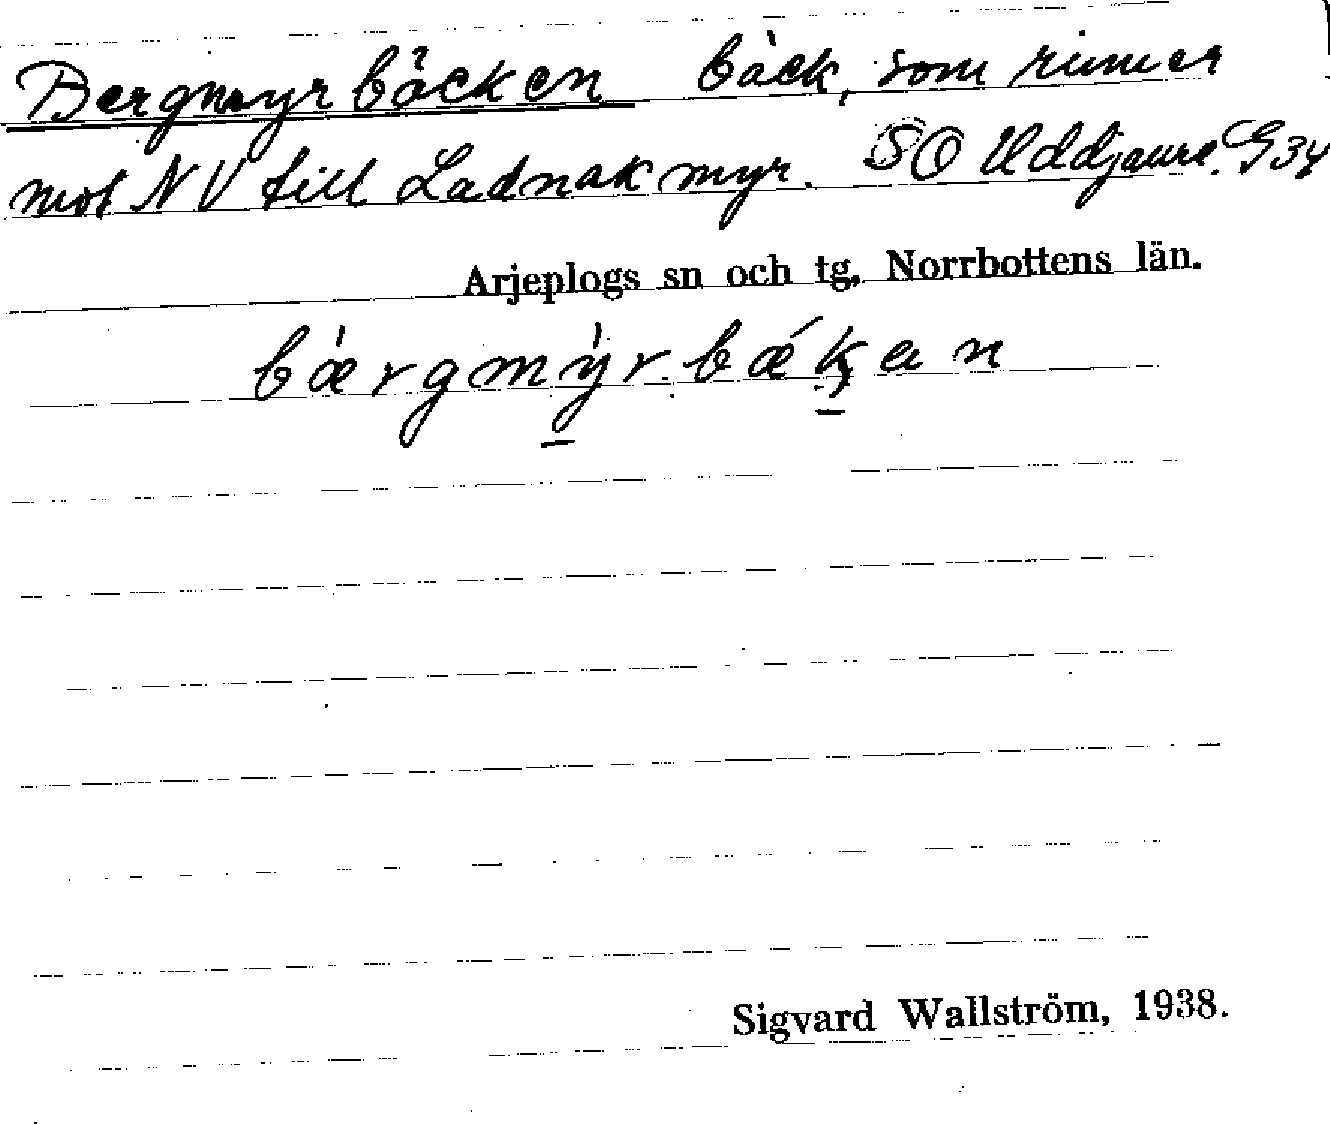 Bergmyrbäcken bäck, som rinner
mot NV till Ladnakmyr. SO Uddjaure. G34
Arjeplogs sn och tg, Norrbottens län.
bæ̀rgmỳ̠rbǽķ̠an
Sigvard Wallström, 1938.